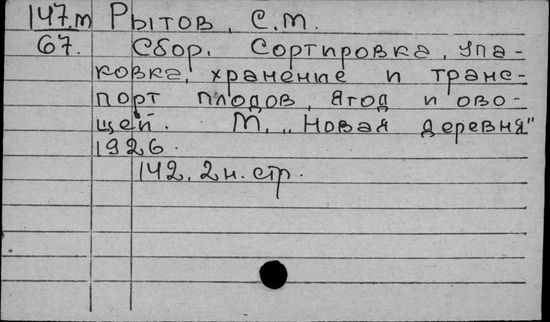 147.м Рытов, С.М.
67. Сбор. Сортировка, упа-
ковка, хранение и транс-
порт плодов, ягод и ово-
щей. М, „Новая деревня"
1926.
142, 2 н. стр.